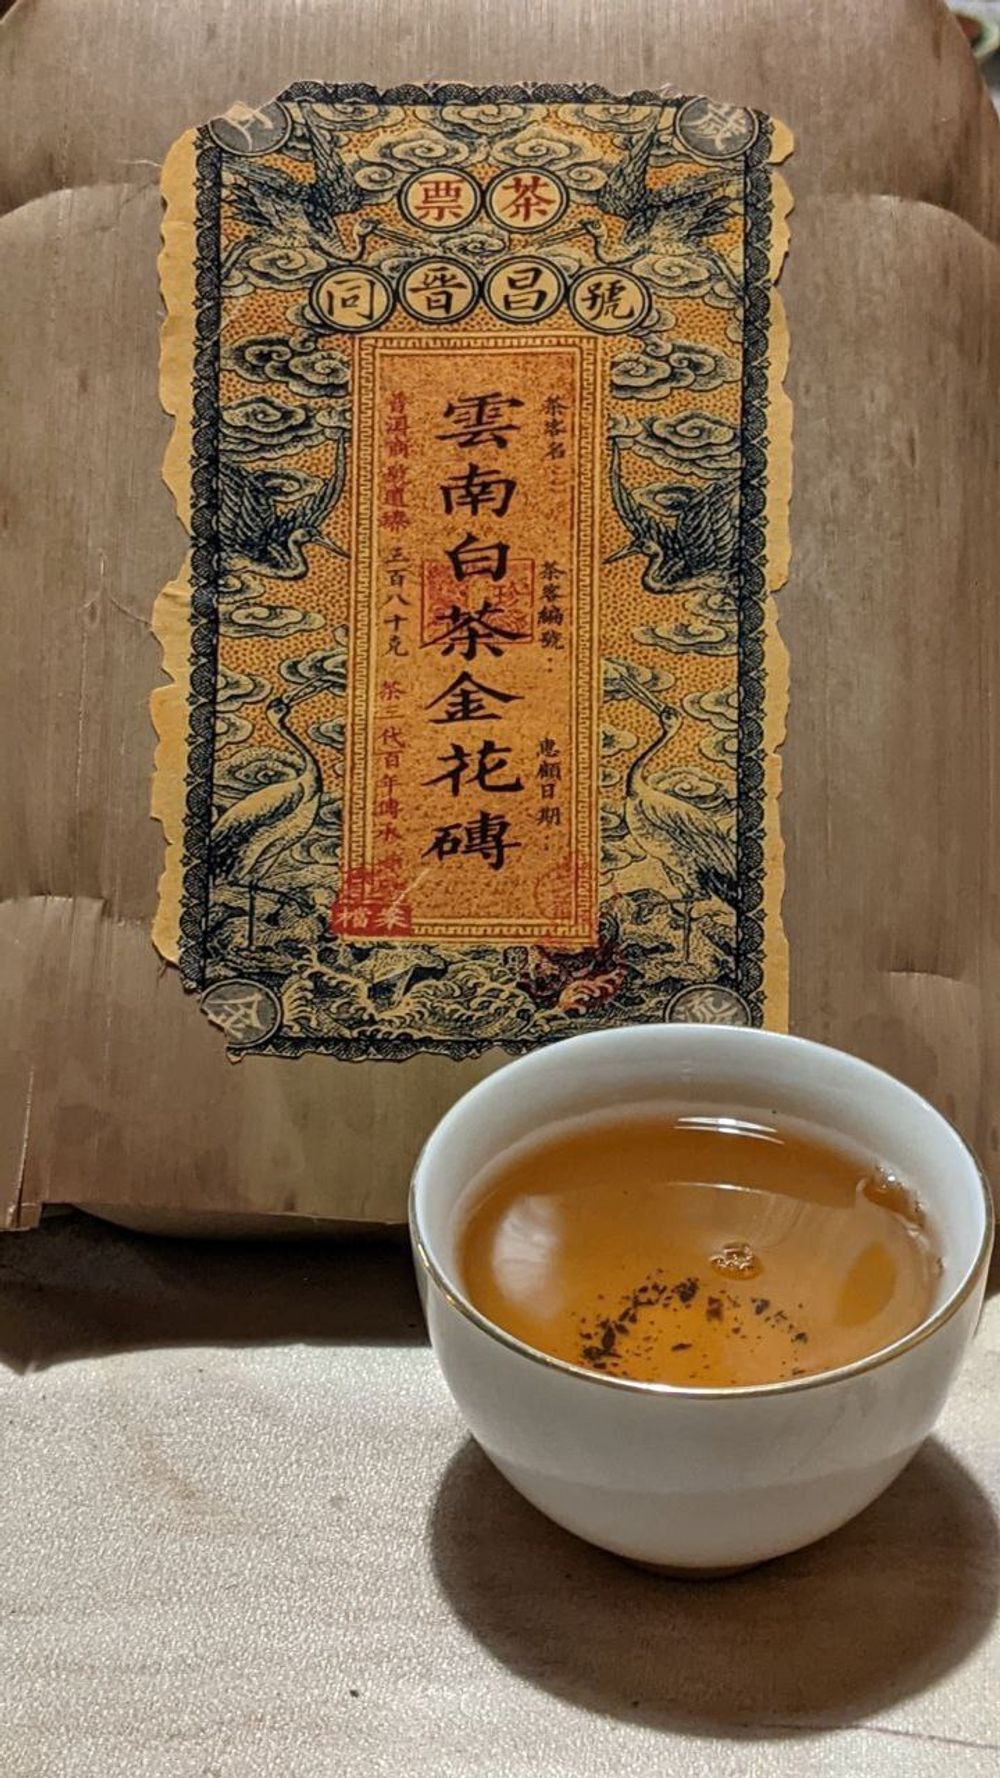 茶票
同晋昌號
茶客名：
茶客編號：
惠顧日期：
雲南白茶金花磚
三百八十克
茶二代百年傳承
檔案